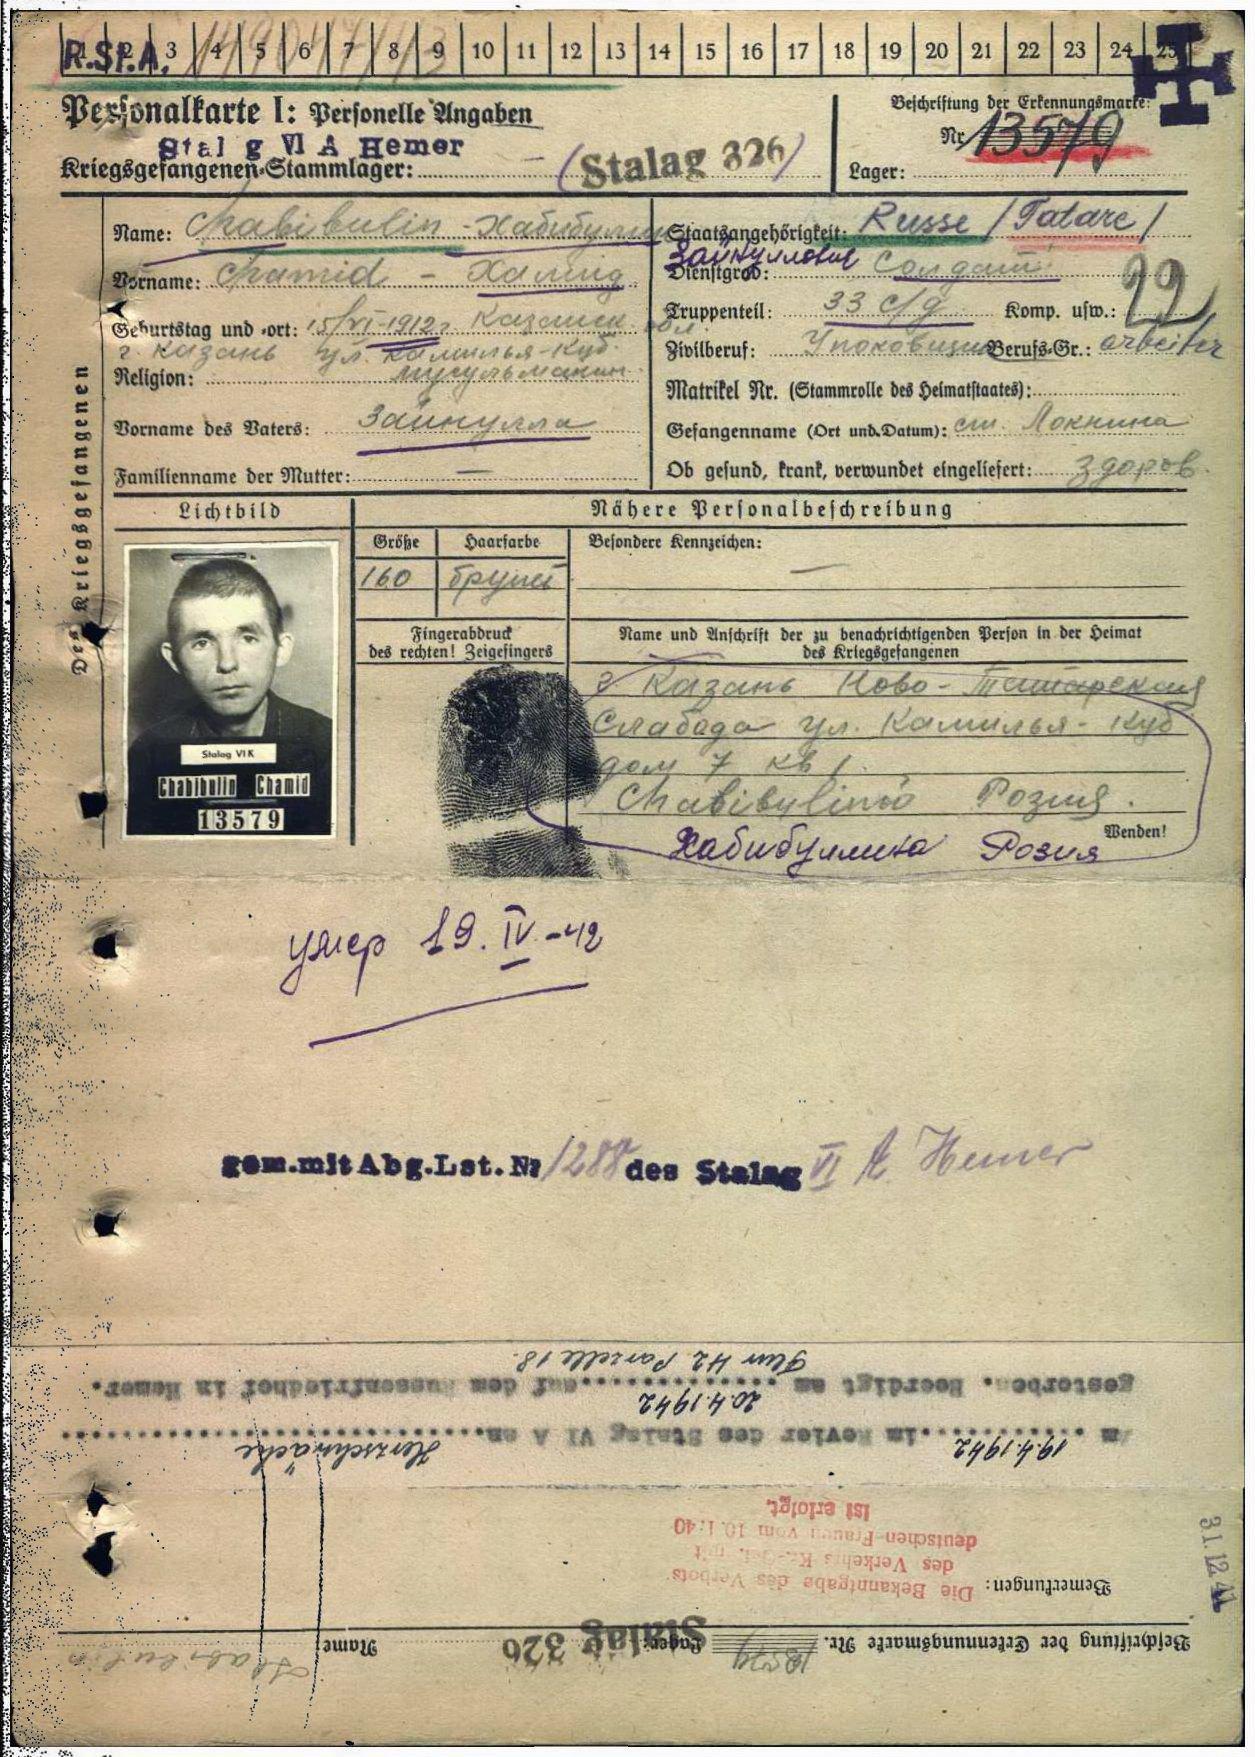 1 2 3 4 5 6 7 8 9 10 11 12 13 14 15 16 17 18 19 20 21 22 23 24 25
R.St.A.
Personalkarte I: Personelle Angaben
Beschriftung der Erkennungsmarke:
Stalag VI A Hemer
Nr. 13579
Kriegsgefangenen-Stammlager: (Stalag 326)
Lager:
Des Kriegsgefangenen
Name: Chabibulin - Хабибуллин
Vorname: Chamid - Хамид
Geburtstag und -ort: 15/VI-1912г Казанск. обл.
г. Казань ул. Камилья-Куб.
Religion: мусульманин
Vorname des Vaters: Зайнулла
Familienname der Mutter: —
Staatsangehörigkeit: Russe / Tatare /
Зайнуллович
Dienstgrad: Солдат
Truppenteil: 33 с/д Komp. usw.: 22
Zivilberuf: Berufs-Gr.: arbeiter
Matrikel Nr. (Stammrolle des Heimatstaates):
Gefangenname (Ort und Datum): ст. Локнина
Ob gesund, krank, verwundet eingeliefert: здоров.
Lichtbild
Nähere Personalbeschreibung
Größe Haarfarbe Besondere Kennzeichen:
160 брунет —
Fingerabdruck
des rechten! Zeigefingers
Name und Anschrift der zu benachrichtigenden Person in der Heimat
des Kriegsgefangenen
г. Казань Ново-Татарская
Слабода ул. Камилья-Куб
дом 7 кв 1.
Chabibylina Розия.
Wenden!
Хабибуллина Розия
Stalag VI K
Chabibulin Chamid
13579
умер 19.IV-42
gem.mit Abg.Lst.Nr 1288 des Stalag VI A Hemer
Beschriftung der Erkennungsmarke Nr. 13579 Lager: Stalag 326 Name:
Bemerkungen: Die Bekanntgabe des Verbots
des Verkehrs Kr.-Gef. mit
deutschen Frauen vom 10.1.40
ist erfolgt.
31.12.41
Am 19.4.1942 im Revier des Stalag VI A an Herzschwäche
gestorben. Beerdigt am 20.4.1942 auf dem Russenfriedhof in Hemer.
Flur 42 Parzelle 18.